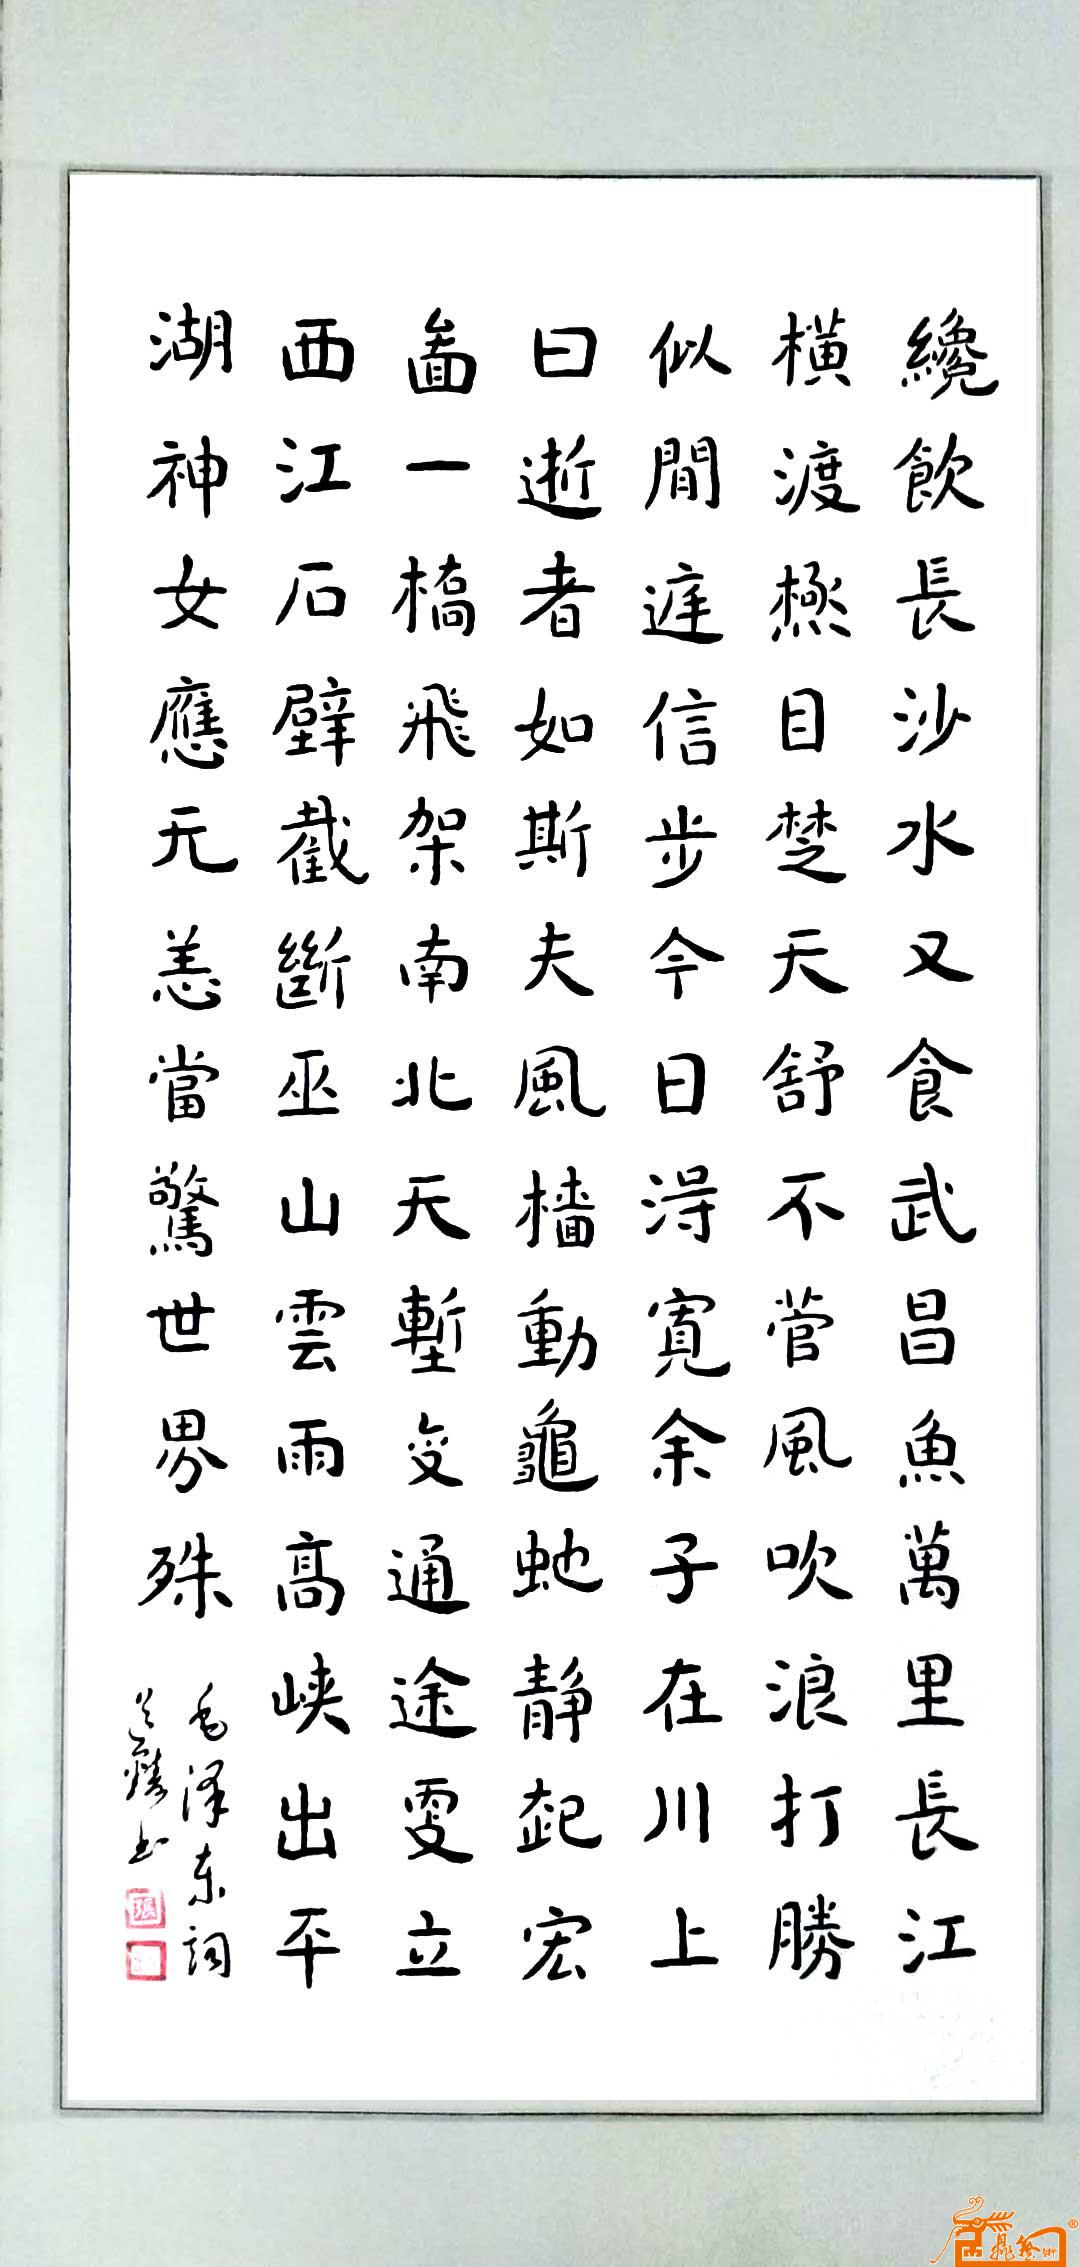 纔飲長沙水又食武昌魚萬里長江
橫渡極目楚天舒不管風吹浪打勝
似閒庭信步今日得寬余子在川上
曰逝者如斯夫風檣動龜蛇靜起宏
啚一橋飛架南北天塹变通途更立
西江石壁截斷巫山雲雨高峽出平
湖神女應无恙當驚世界殊
毛澤东詞
书
張